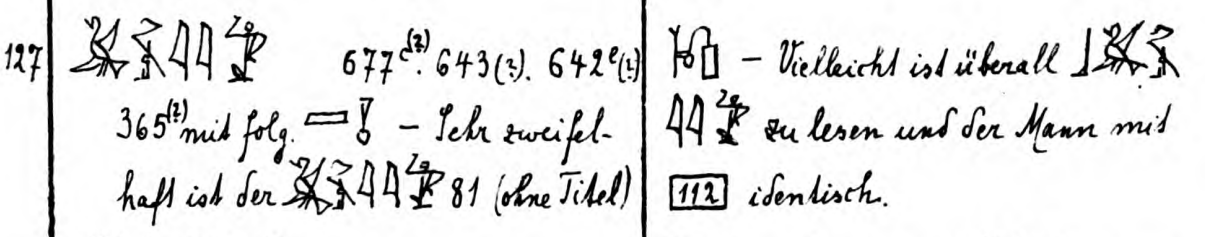 127 677ᶜ⁽?⁾. 643(?). 642ᵉ(?)
365⁽?⁾ mit folg. – Sehr zweifel-
haft ist der 81 (ohne Titel)
– Vielleicht ist überall
zu lesen und der Mann mit
112 identisch.